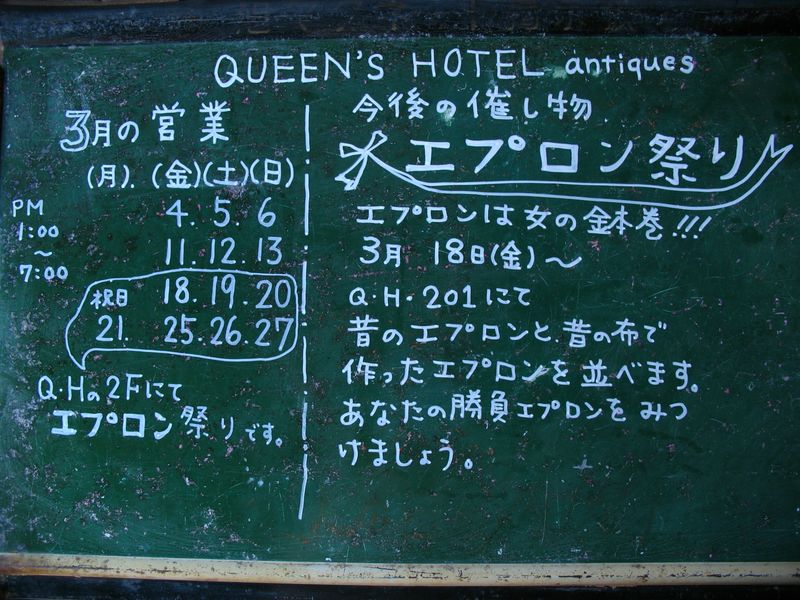 QUEEN'S HOTEL antiques
3月の営業
(月). (金)(土)(日)
PM
1:00
〜
7:00
4. 5. 6
11. 12. 13
祝日 18. 19. 20
21. 25. 26. 27
Q.Hの2Fにて
エプロン祭りです。
今後の催し物
エプロン祭り
エプロンは女の鉢巻!!!
3月 18日(金)〜
Q・H・201にて
昔のエプロンと昔の布で
作ったエプロンを並べます。
あなたの勝負エプロンをみつ
けましょう。